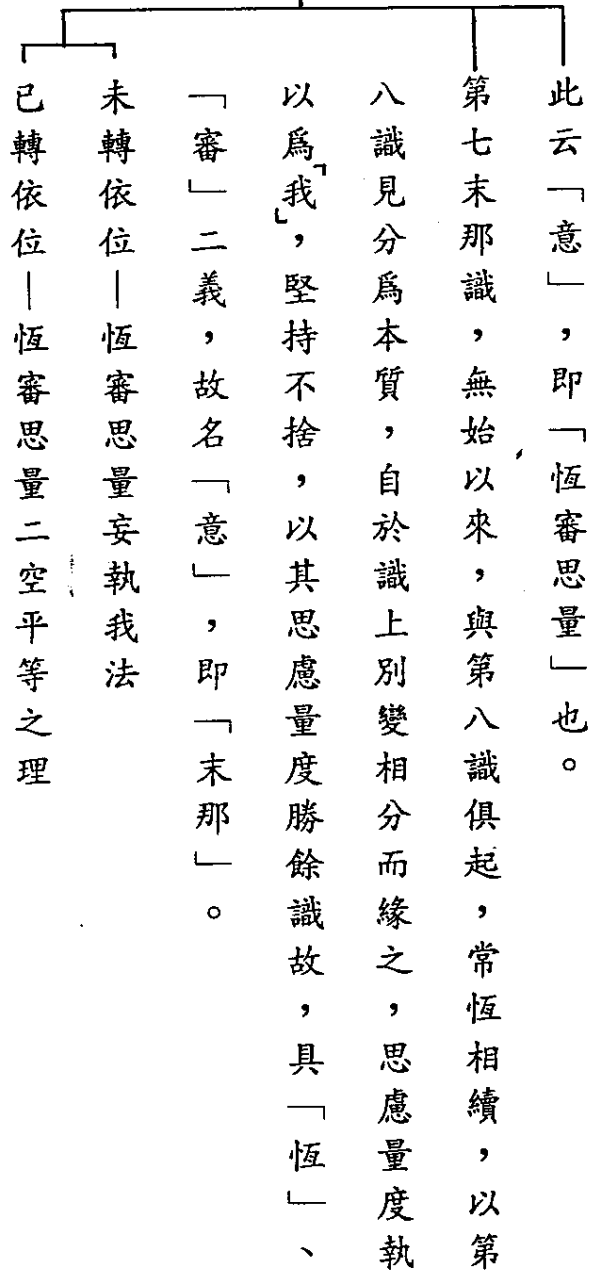 此云「意」，即「恆審思量」也。
第七末那識，無始以來，與第八識俱起，常恆相續，以第
八識見分爲本質，自於識上別變相分而緣之，思慮量度執
以爲「我」，堅持不捨，以其思慮量度勝餘識故，具「恆」、
「審」二義，故名「意」，即「末那」。
未轉依位—恆審思量妄執我法
已轉依位—恆審思量二空平等之理